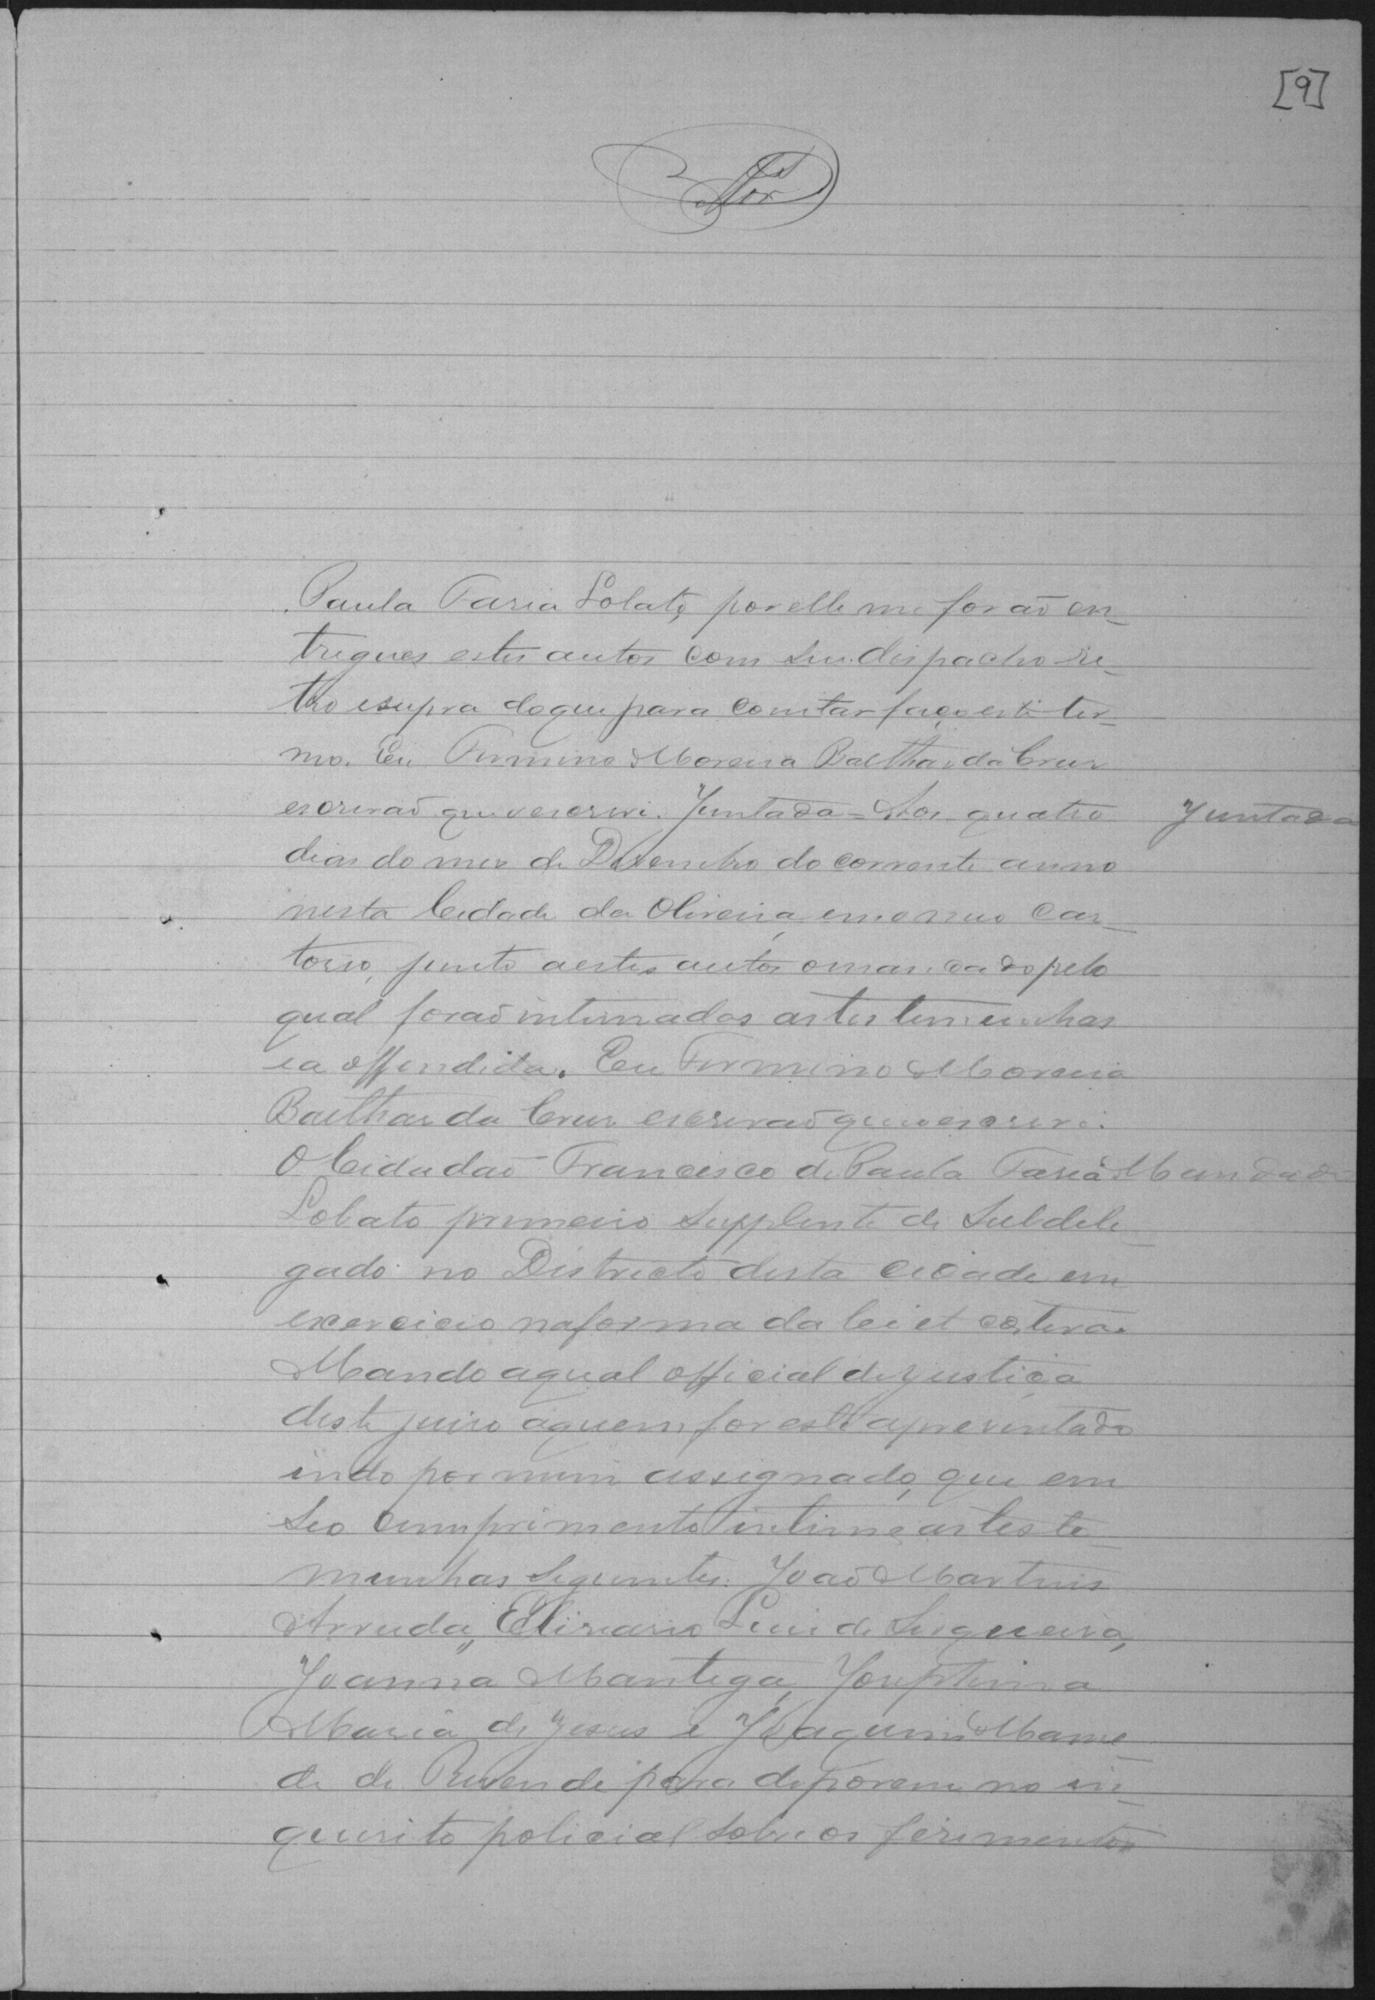 [9]
Paula Faria Lobato, por elle me forão en-
tregues estes autos com seu despacho re-
tro e supra do que para constar faço este ter-
mo. Eu Firmino Moreira Balthar da Cruz
escrivão que o escrevi. Juntada = Aos quatro
Juntada
dias do mez de Dezembro do corrente anno
nesta Cidade da Oliveira, em o meu Car-
torio, junto a estes autos o mandado pelo
qual forão intimados as testemunhas
e a offendida. Eu Firmino Moreira
Balthar da Cruz escrivão que o escrevi.
O Cidadão Francisco de Paula Faria
Mandado
Lobato primeiro supplente de Subdele-
gado no Districto desta cidade em
exercicio na forma da lei et cetera.
Mando a qual official de justiça
deste juizo a quem for este aprezentado
indo por mim assignado, que em
seo cumprimento intime as teste-
munhas seguintes: João Martins
Arruda, Elisiario Luis de Siqueira,
Joanna Mantega, Josephina
Maria de Jesus e Joaquim Mame-
de de Rezende para deporem no in-
querito policial sobre os ferimentos